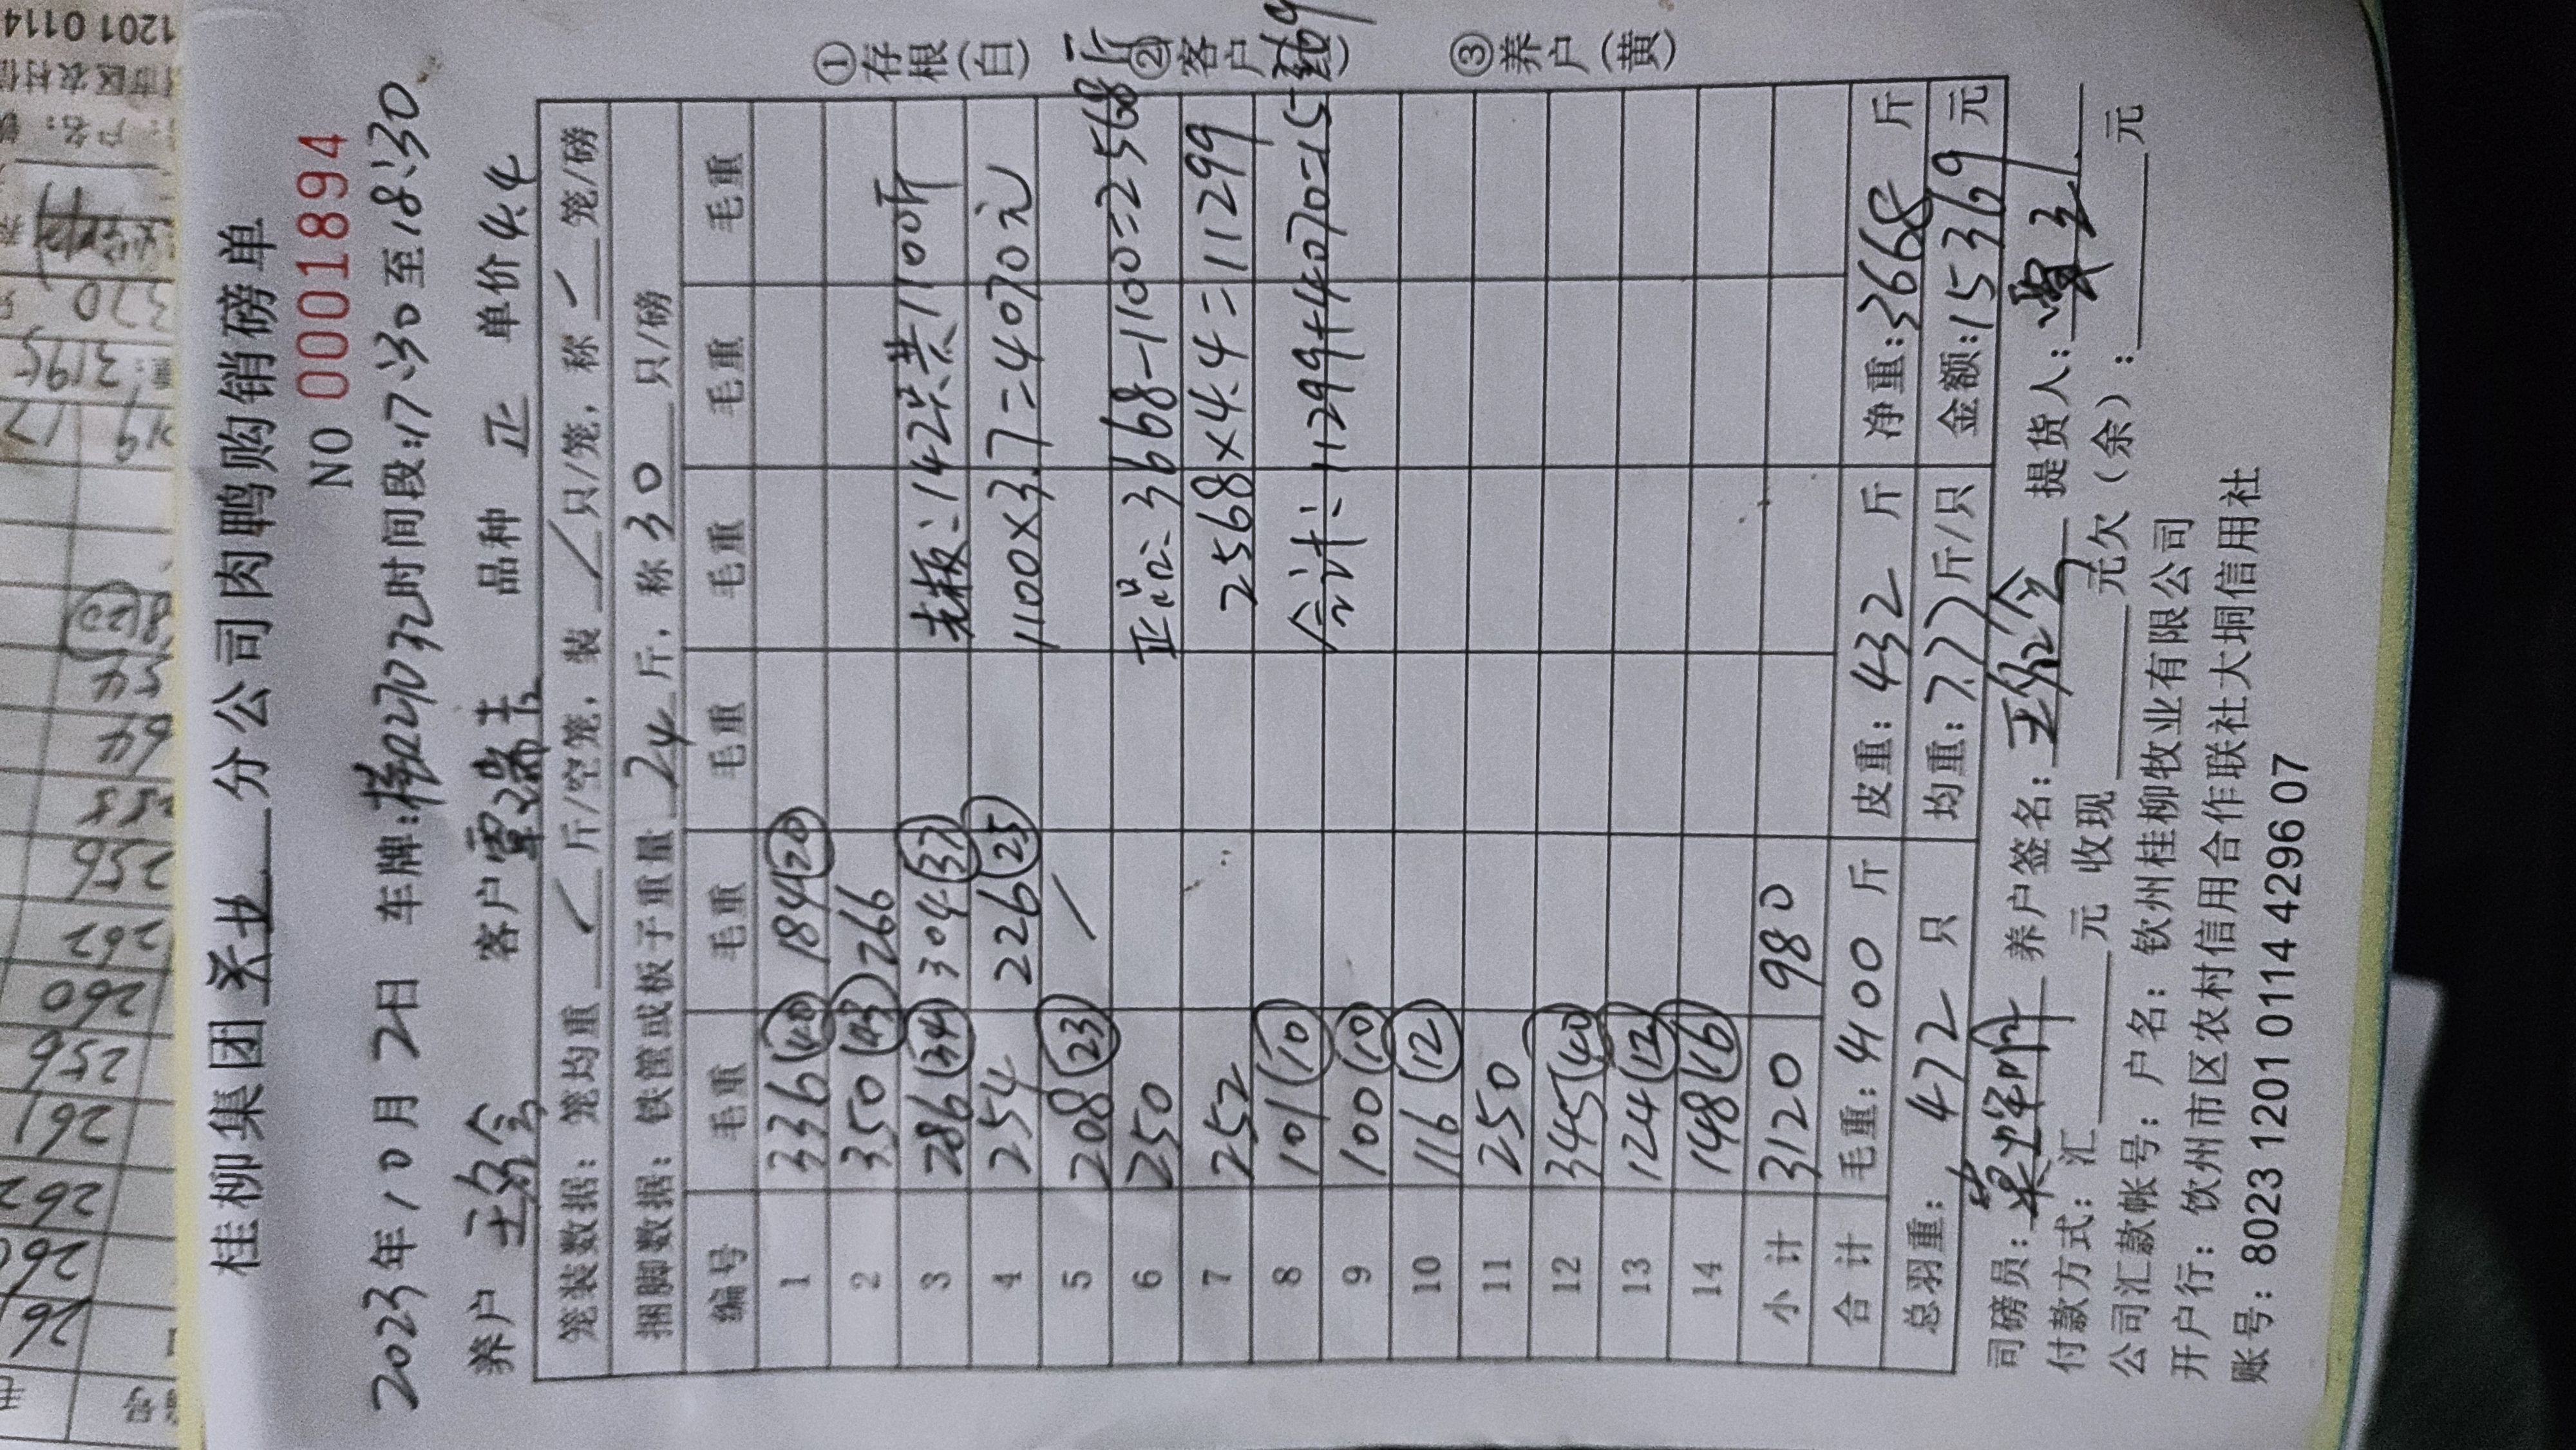 桂柳集团 分公司肉鸭购销磅单
NO 0001894
2023年10月2日 车牌:桂227032时间段:17:30至18:30
养户 客户覃瑞玉 品种 正 单价4.4
笼装数据：笼均重 / 斤/空笼，装 / 只/笼，称 / 笼/磅
捆脚数据：铁筐或板子重量 24 斤，称 30 只/磅
编号 毛重 毛重 毛重 毛重 毛重 毛重
1 336 (40) 184 (20)
2 350 (43) 266
3 286 (34) 304 (37) 老板：142只共1100斤
4 254 226 (25) 1100×3.7=4070元
5 208 (23) /
6 250 正品：3668-1100=2568斤
7 252 2568×4.4=11299
8 101 (10)
9 100 (10) 合计：11299+4070=15369
10 116 (12)
11 250
12 345 (40)
13 124 (12)
14 148 (16)
小计 3120 980
合计 毛重：4100 斤 皮重：432 斤 净重：3668 斤
总羽重： 472 只 均重：7.77斤/只 金额：15369元
司磅员： 养户签名： 提货人：
付款方式：汇 元 收现 元欠（余）： 元
公司汇款帐号：户名：钦州桂柳牧业有限公司
开户行：钦州市区农村信用合作联社大垌信用社
账号：8023 1201 0114 4296 07
①存根(白) ②客户 ③养户(黄)
1201 0114
市区农村信
户名：
320
3195
219 17
8 (20)
54
64
258
256
262
260
256
261
262
260